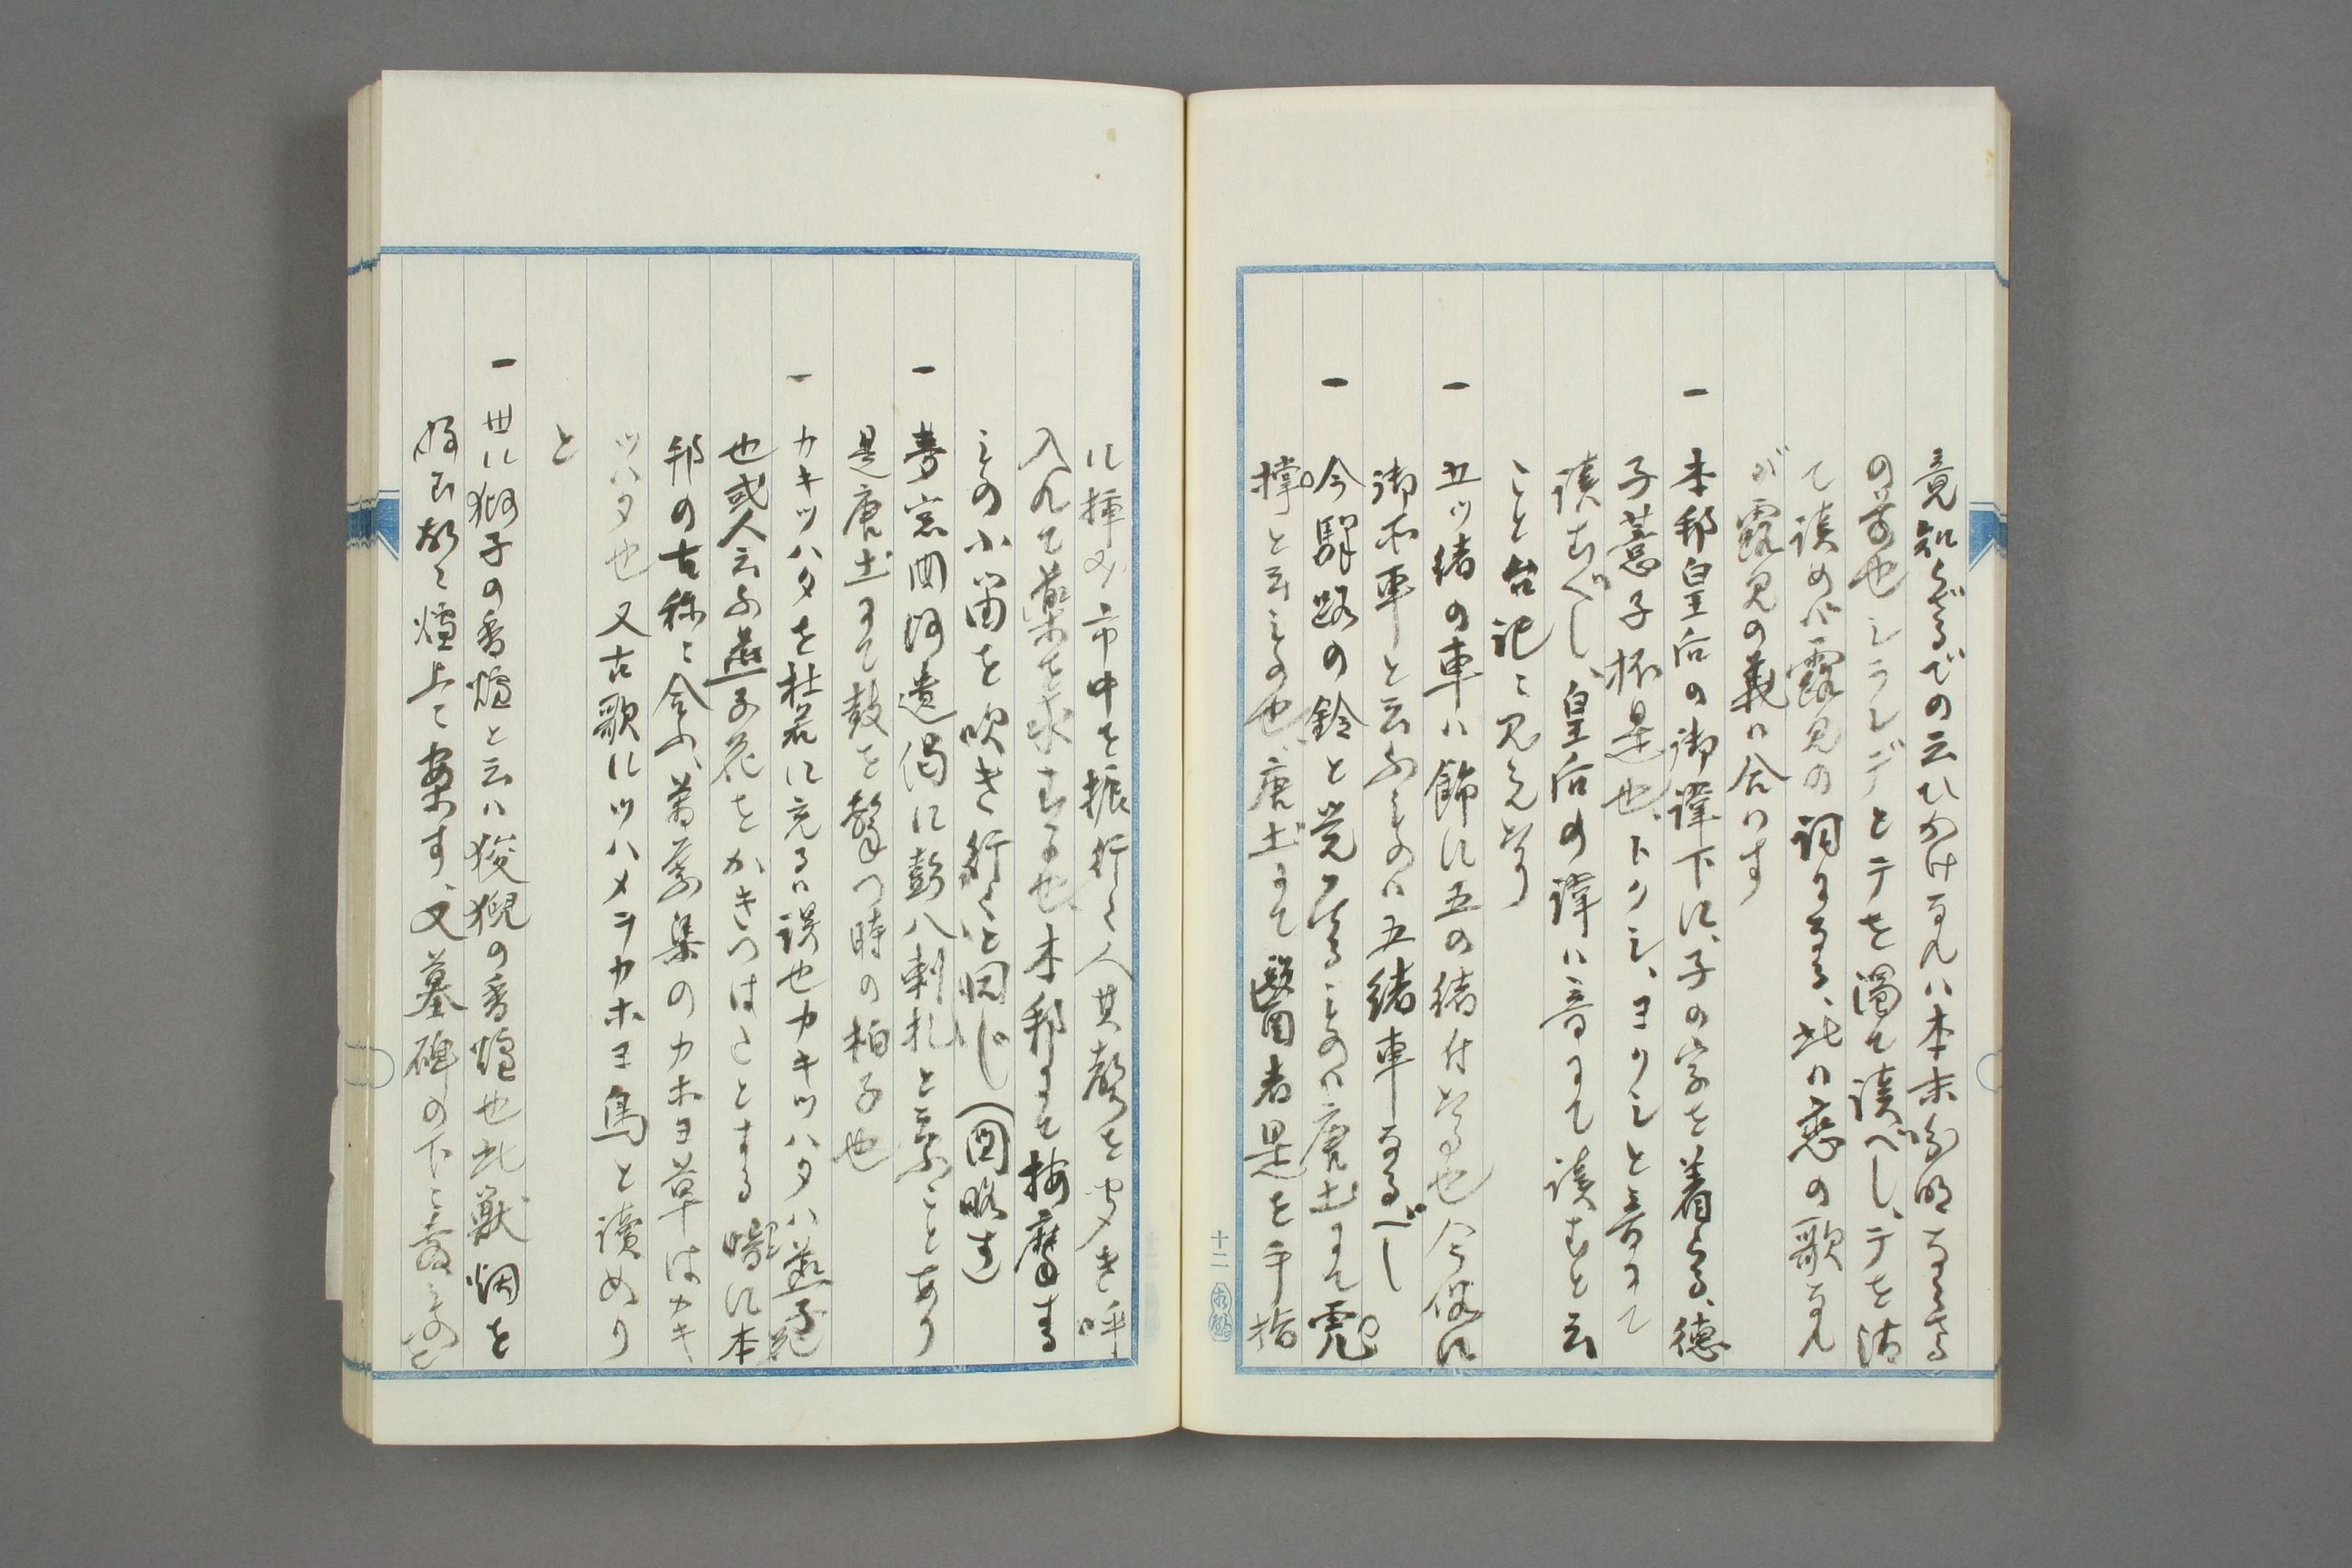 竟知らざるでの云ひかけなれハ本末分明ならざる
の筈也シラレデとテを濁て読べし、テを清
て読めバ露見の詞となる、此ハ恋の歌なれ
が露見の義ハ合ハず
一 本邦皇后の御諱下に、子の字を着らる、徳
子薏子抔是也、トクシ、ヨクシと音にて
読むべし、皇后の諱ハ音にて読むと云
こと台記ニ見えたり
一 五ツ緒の車ハ飾に五の緒付たる也今俗に
御所車と云ふものハ五緒車なるべし
一 今駅路の鈴と覚えたるものハ唐土にて虎
撑と云もの也、唐土にて醫者是を手指
十二
に挿み市中を振行く人其声を聞き呼
入れて薬を求むる也、本邦にて按摩する
ものゝ小笛を吹き行くと同じ(図略す)
一 夢窓国師遺偈に彭八剌札と云ふことあり
是唐土にて鼓を撃つ時の拍子也
一 カキツハタを杜若に充るハ誤也カキツハタハ燕子花
也或人云ふ燕子花をかきつはたとする
邦の古称ニ今ふ、萬葉集のカホヨ草はカキ
ツハタ也又古歌にツハメヲカホヨ鳥と讀めり
と
一 世に獅子の香爐と云ハ狻猊の香爐也此獣烟を
好む故ニ爐上ニ安す、又墓碑の下ニ